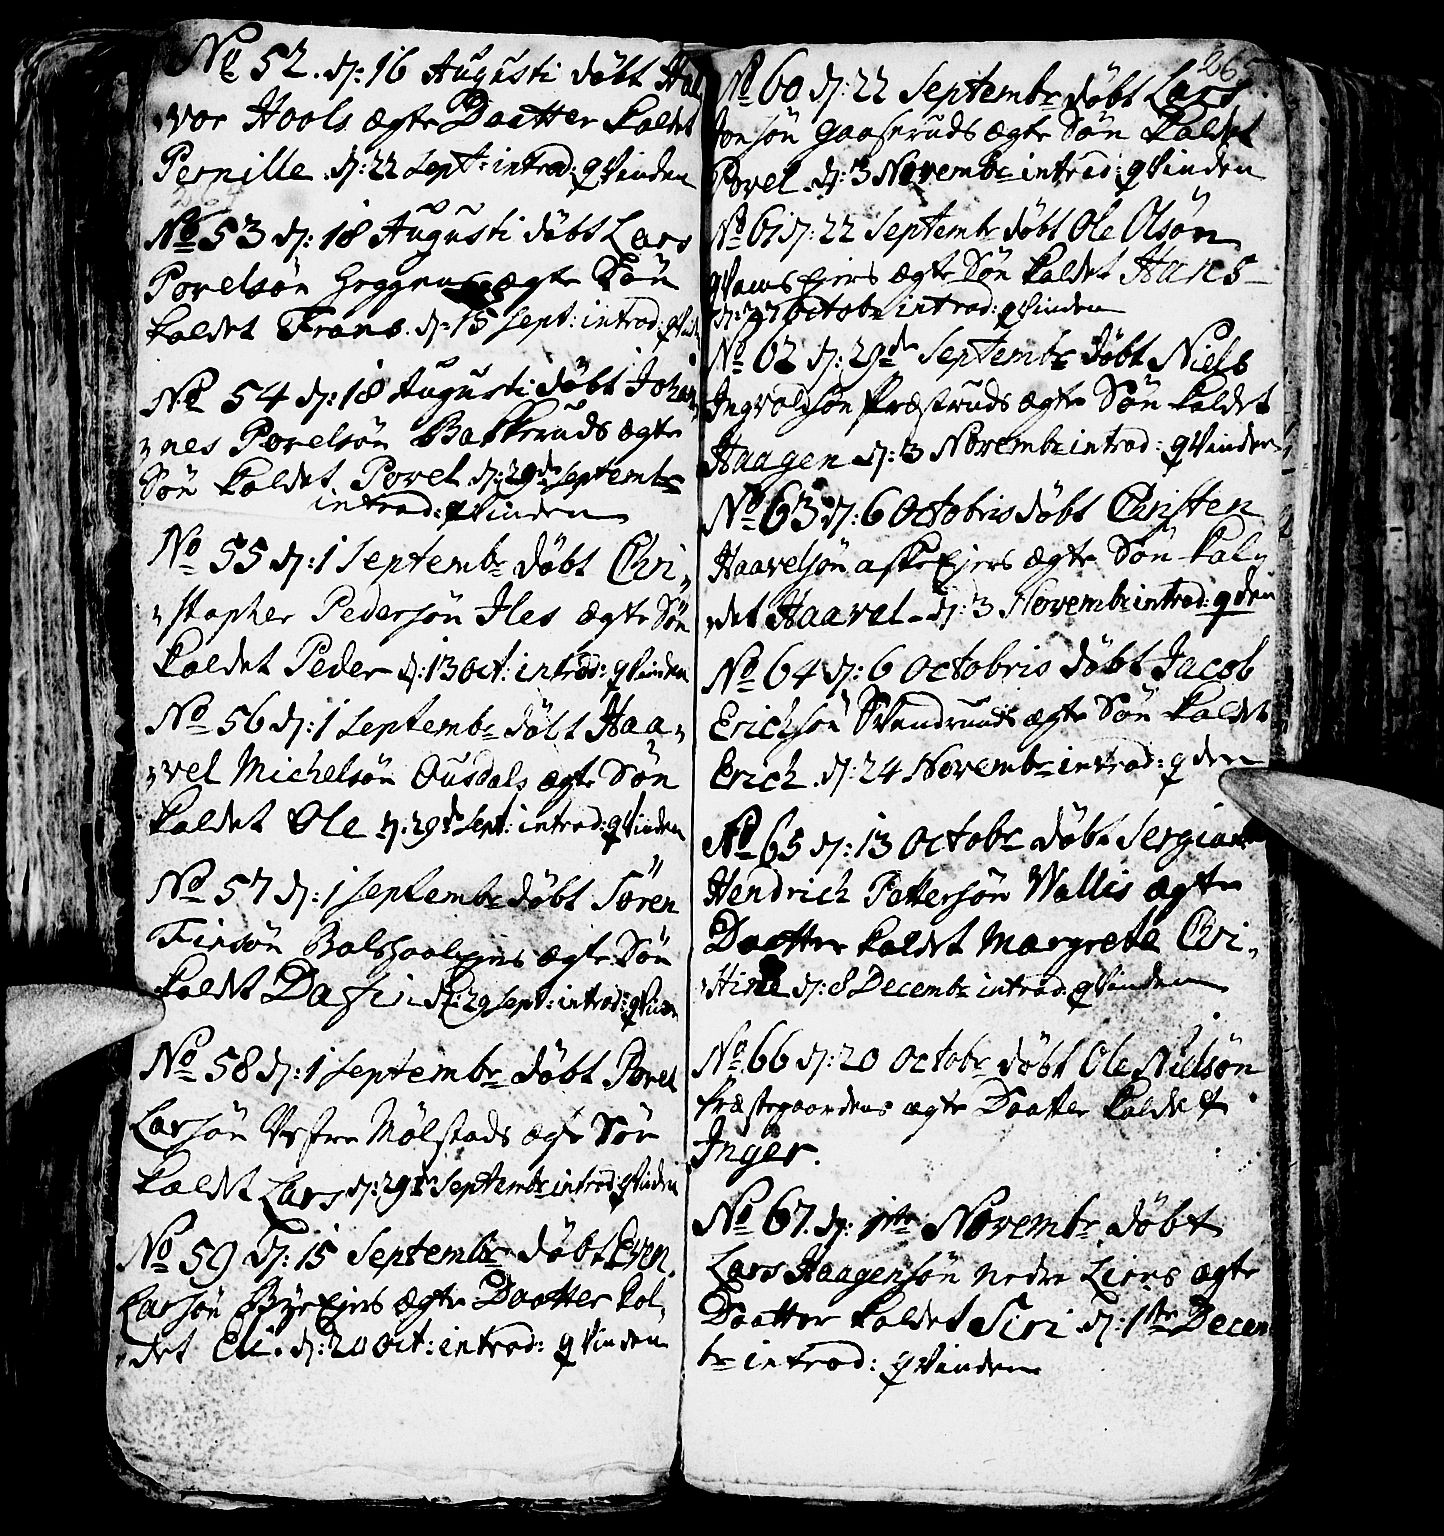 No 52. d: 16 Augusti döbt Hal
vor Hools ægte Daatter kaldet
Pernille d: 22 Sept: introd: qvinden
No 53 d: 18 Augusti döbt Lars
Povelsön ægte Sön
kaldet Frans. d: 15 Sept: introd:
No 54 d: 18 Augusti döbt Johan,,
,,nes Povelsön Bakkeruds ægte
Sön kaldet Povel d: 29de Septembr
introd: qvinden
No 55 d: 1 Septembr döbt Chri,,
,,stopher Pedersön Iles ægte Sön
kaldet Peder d: 13 Oct: introd: qvinden
No 56 d: 1 Septembr döbt Haa,,
,,vel Michelsön Ousdals ægte Sön
kaldet Ole d: 29de Sept: introd: qvinden
No 57 d: 1 Septembr döbt Sören
Finsön ægte Sön
kaldet Dafin d: 29 Sept: introd:
No 58 d: 1 Septembr döbt Povel
Larsön Vestre Mölstads ægte Sön
kaldet Lars d: 29de Septembr introd: qvinden
No 59 d: 15 Septembr döbt Even
Larsön ByeEjers ægte Daatter kal,,
,,det Eli. d: 20 Oct: introd: qvinden
265
No 60 d: 22 Septembr döbt Lars
Jonsön Gaasruds ægte Sön kaldet
Povel d: 3 Novembr introd: qvinden
No 61 d: 22 Septembr döbt Ole Olsön
ægte Sön kaldet Hans
d: 27 Octobr introd: qvinden
No 62 d: 29de Septembr döbt Niels
Ingvoldsön Præstruds ægte Sön kaldet
Haagen d: 3 Novembr introd: qvinden
No 63 d: 6 Octobris döbt Christen
Haavelsön askeEjers ægte Sön kal,,
,,det Haavel d: 3 Novembr introd: qden
No 64 d: 6 Octobris döbt Jacob
Erichsön Svendruds ægte Sön kaldet
Erich d: 24 Novembr introd: qden
No 65 d: 13 Octobr döbt Sergiant
Hendrich Pettersön Wallis ægte
Daatter kaldet Margrete Chri,,
,,stine d: 8 Decembr introd: qvinden
No 66 d: 20 Octobr döbt Ole Nielsön
Præstegaardens ægte Daatter kaldet
Inger.
No 67. d: 1ste Novembr döbt
Lars Haagensön nedre Liens ægte
Daatter kaldet Siri d: 1ste Decem
br introd: qvinden